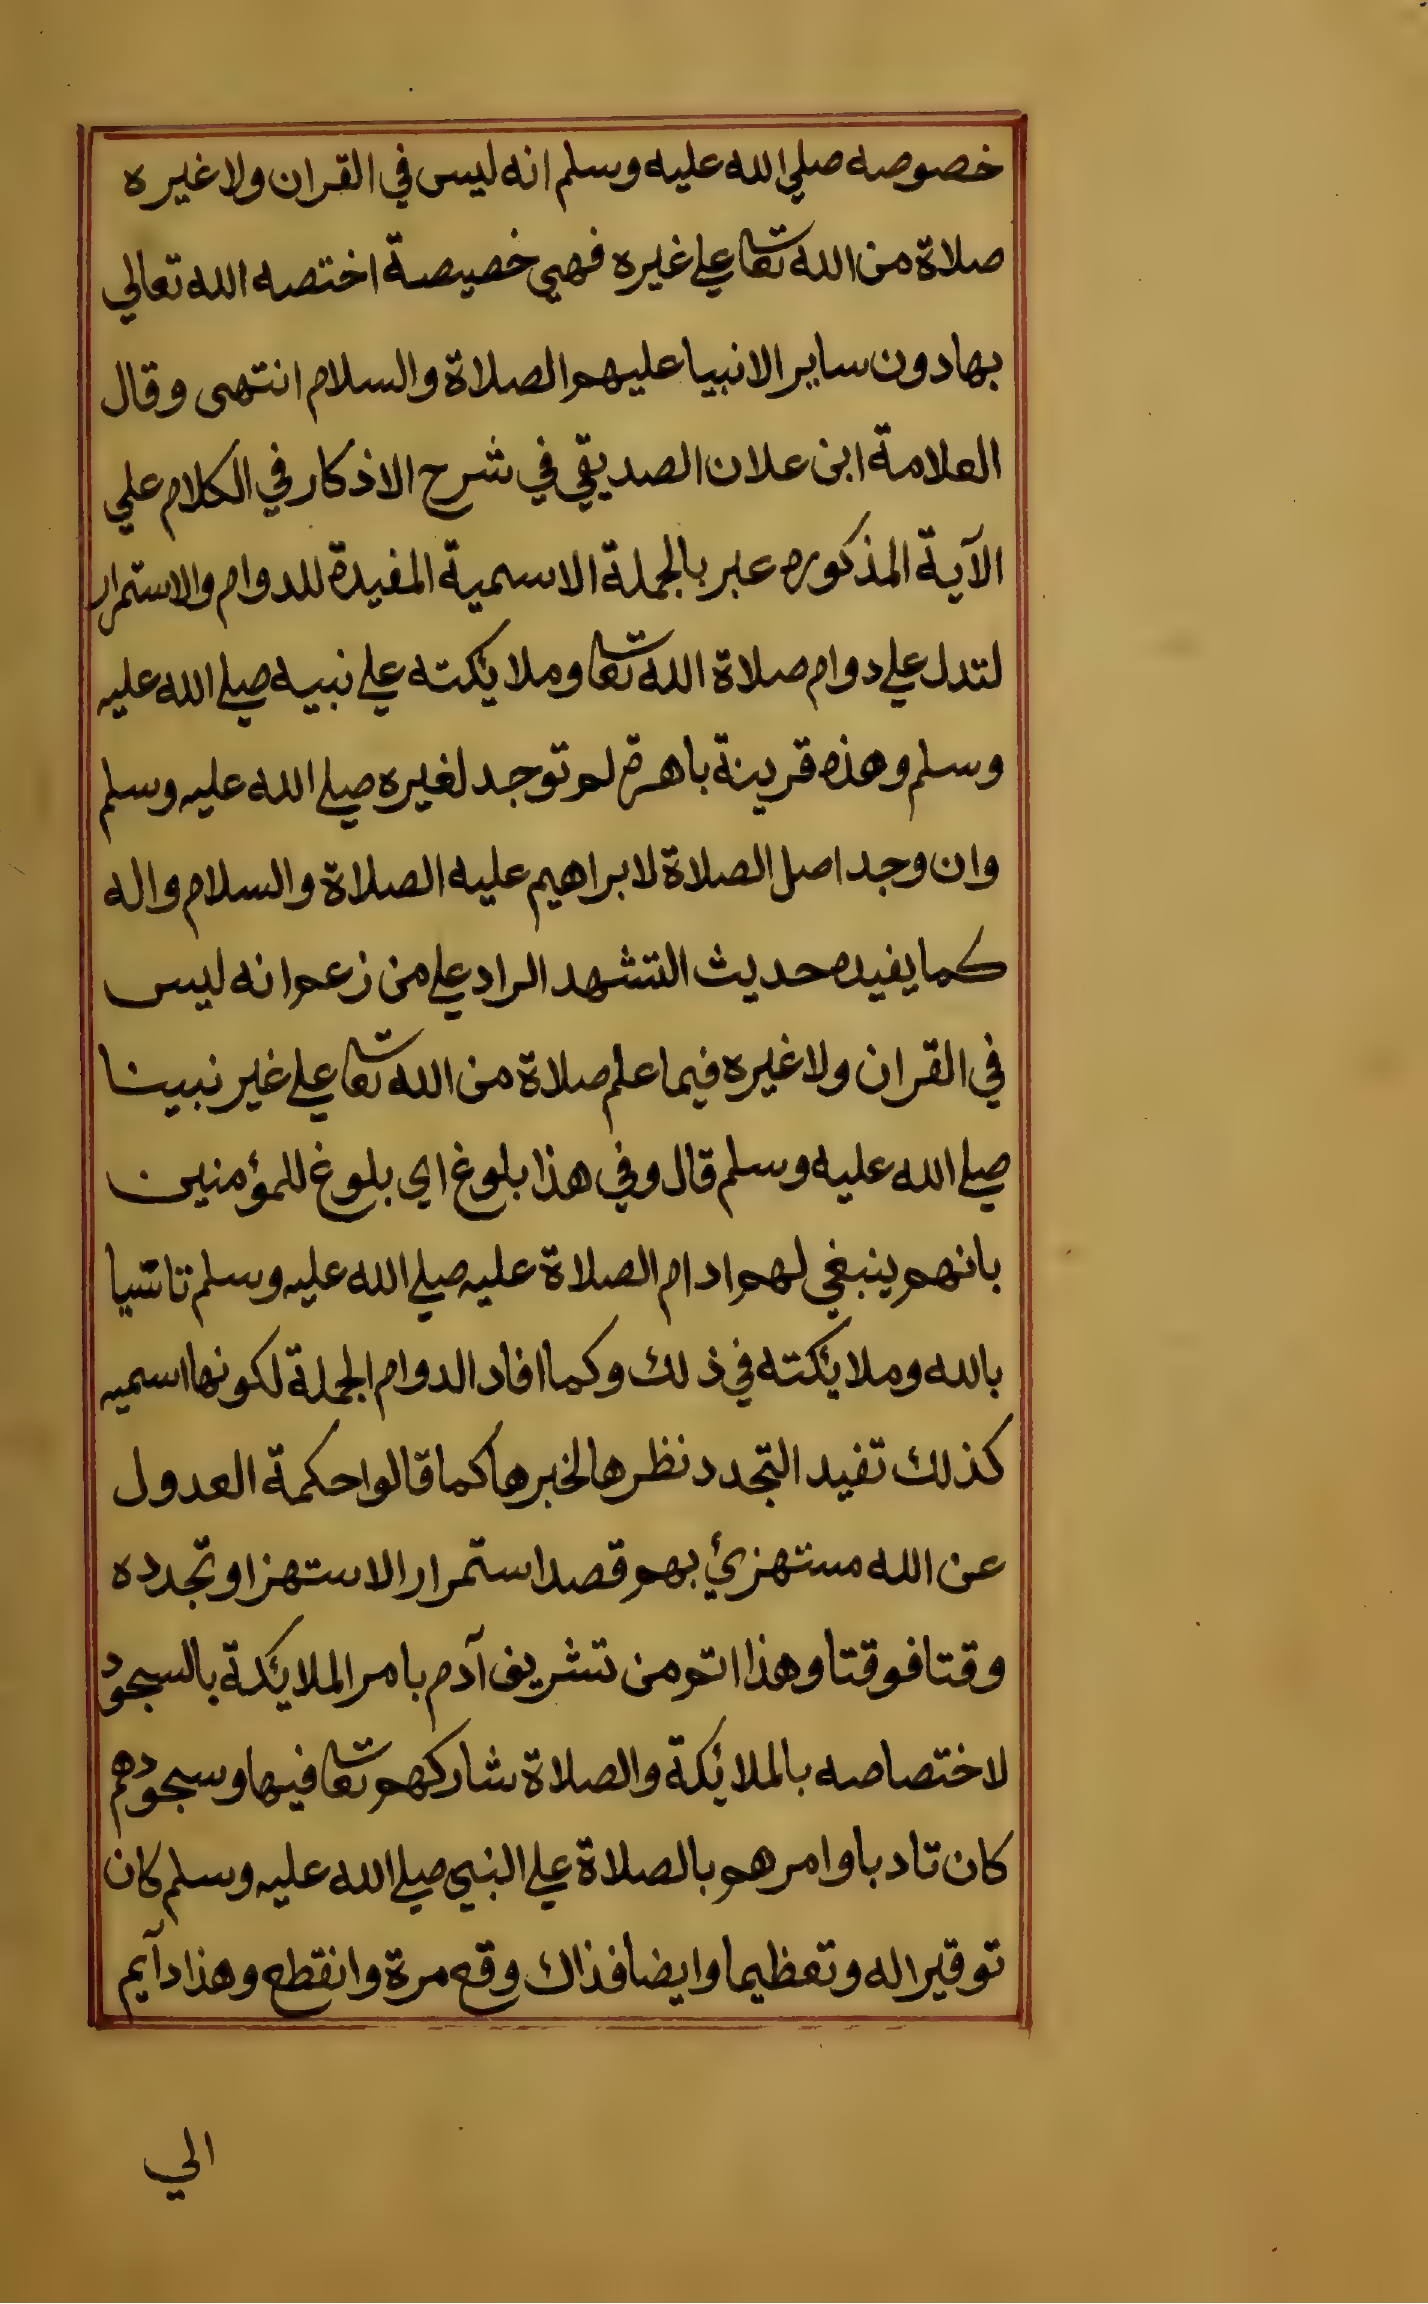 خصوصه صلي الله عليه وسلم انه ليس في القران ولا غيره
صلاة من الله تعا علي غيره فهي خصيصة اختصه الله تعالي
بها دون ساير الانبيا عليهم الصلاة والسلام انتهى وقال
العلامة ابن علان الصديقي في شرح الاذكار في الكلام علي
الآية المذكوره عبر بالجملة الاسمية المفيدة للدوام والاستمرار
لتدل علي دوام صلاة الله تعا وملايكته علي نبيه صلي الله عليه
وسلم وهذه قرينة باهرة لم توجد لغيره صلي الله عليه وسلم
وان وجد اصل الصلاة لابراهيم عليه الصلاة والسلام واله
كما يفيده حديث التشهد الراد علي من زعم انه ليس
في القران ولا غيره فيما علم صلاة من الله تعا علي غير نبينا
صلي الله عليه وسلم قال وفي هذا بلوغ اي بلوغ للمؤمنين
بانهم ينبغي لهم ادام الصلاة عليه صلي الله عليه وسلم تاسيا
بالله وملايكته في ذلك وكما افاد الدوام الجملة لكونها اسميه
كذلك تفيد التجدد نظرها لخبرها كما قالوا حكمة العدول
عن الله مستهزئ بهم قصد استمرار الاستهزا وتجدده
وقتا فوقتا وهذا اتم من تشريف آدم بامر الملايكة بالسجود
لاختصاصه بالملائكة والصلاة شاركهم تعا فيها وسجودهم
كان تادبا وامرهم بالصلاة علي النبي صلي الله عليه وسلم كان
توقيرا له وتعظيما وايضا فذاك وقع مرة وانقطع وهذا دآيم
الي